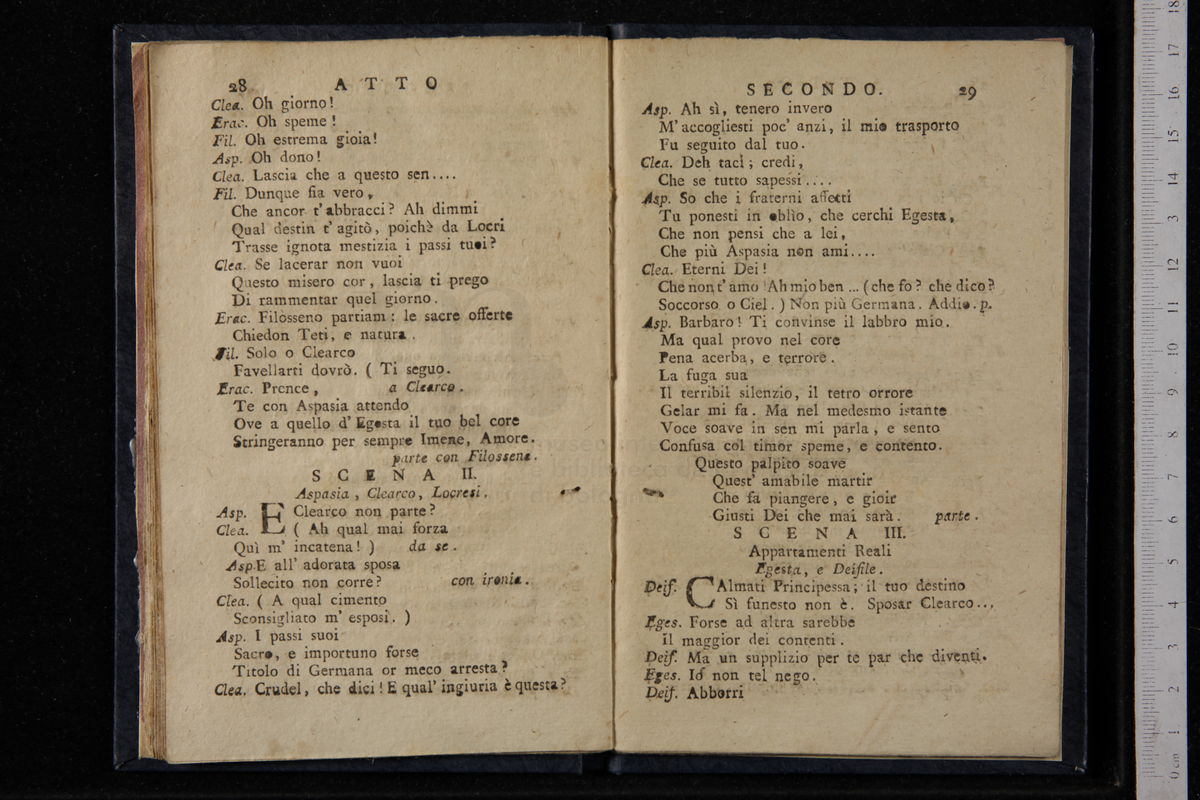 28 ATTO
Clea. Oh giorno!
Erac. Oh speme!
Fil. Oh estrema gioia!
Asp. Oh dono!
Clea. Lascia che a questo sen....
Fil. Dunque fia vero,
Che ancor t'abbracci? Ah dimmi
Qual destin t'agitò, poichè da Locri
Trasse ignota mestizia i passi tuoi?
Clea. Se lacerar non vuoi
Questo misero cor, lascia ti prego
Di rammentar quel giorno.
Erac. Filosseno partiam: le sacre offerte
Chiedon Teti, e natura.
Fil. Solo o Clearco
Favellarti dovrò. ( Ti seguo.
Erac. Prence, a Clearco.
Te con Aspasia attendo
Ove a quello d'Egesta il tuo bel core
Stringeranno per sempre Imene, Amore.
parte con Filossene.
SCENA II.
Aspasia, Clearco, Locresi.
Asp. E Clearco non parte?
Clea. ( Ah qual mai forza
Quì m'incatena! ) da se.
Asp. E all'adorata sposa
Sollecito non corre? con ironia.
Clea. ( A qual cimento
Sconsigliato m'esposi. )
Asp. I passi suoi
Sacro, e importuno forse
Titolo di Germana or meco arresta?
Clea. Crudel, che dici! E qual'ingiuria è questa?
SECONDO. 29
Asp. Ah sì, tenero invero
M'accogliesti poc'anzi, il mio trasporto
Fu seguito dal tuo.
Clea. Deh taci; credi,
Che se tutto sapessi....
Asp. So che i fraterni affetti
Tu ponesti in oblìo, che cerchi Egesta,
Che non pensi che a lei,
Che più Aspasia non ami....
Clea. Eterni Dei!
Che non t'amo! Ah mio ben ... ( che fo? che dico?
Soccorso o Ciel. ) Non più Germana. Addio. p.
Asp. Barbaro! Ti convinse il labbro mio.
Ma qual provo nel core
Pena acerba, e terrore.
La fuga sua
Il terribil silenzio, il tetro orrore
Gelar mi fa. Ma nel medesmo istante
Voce soave in sen mi parla, e sento
Confusa col timor speme, e contento.
Questo palpito soave
Quest'amabile martir
Che fa piangere, e gioir
Giusti Dei che mai sarà. parte.
SCENA III.
Appartamenti Reali
Egesta, e Deifile.
Deif. CAlmati Principessa; il tuo destino
Sì funesto non è. Sposar Clearco...
Eges. Forse ad altra sarebbe
Il maggior dei contenti.
Deif. Ma un supplizio per te par che diventi.
Eges. Io non tel nego.
Deif. Abborri